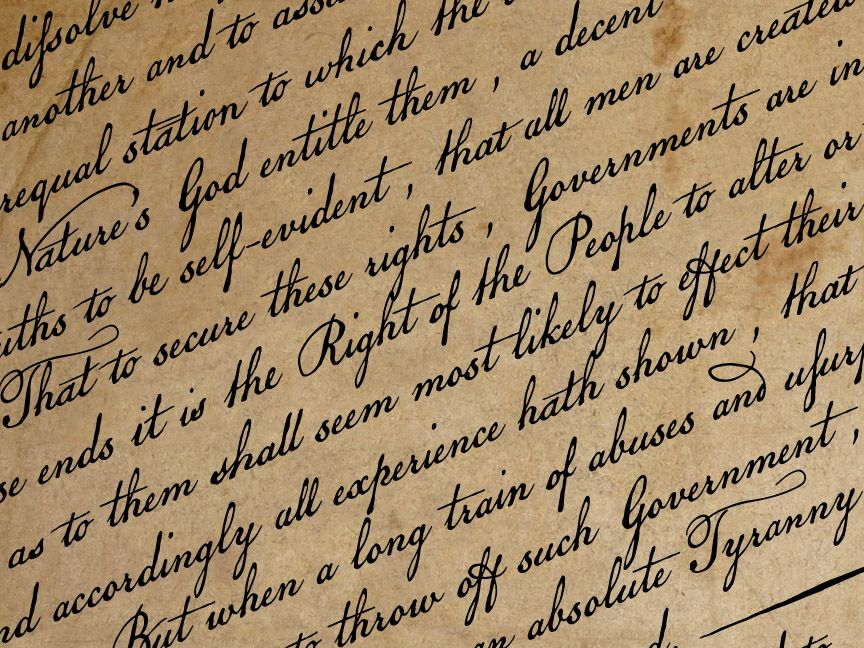 diſsolve
another and to assu
equal station to which the
Nature's God entitle them , a decent
uths to be self-evident , that all men are created
That to secure these rights , Governments are in
se ends it is the Right of the People to alter or
as to them shall seem most likely to effect their
nd accordingly all experience hath shown , that
But when a long train of abuses and uſurp
to throw off such Government ,
an absolute Tyranny
to